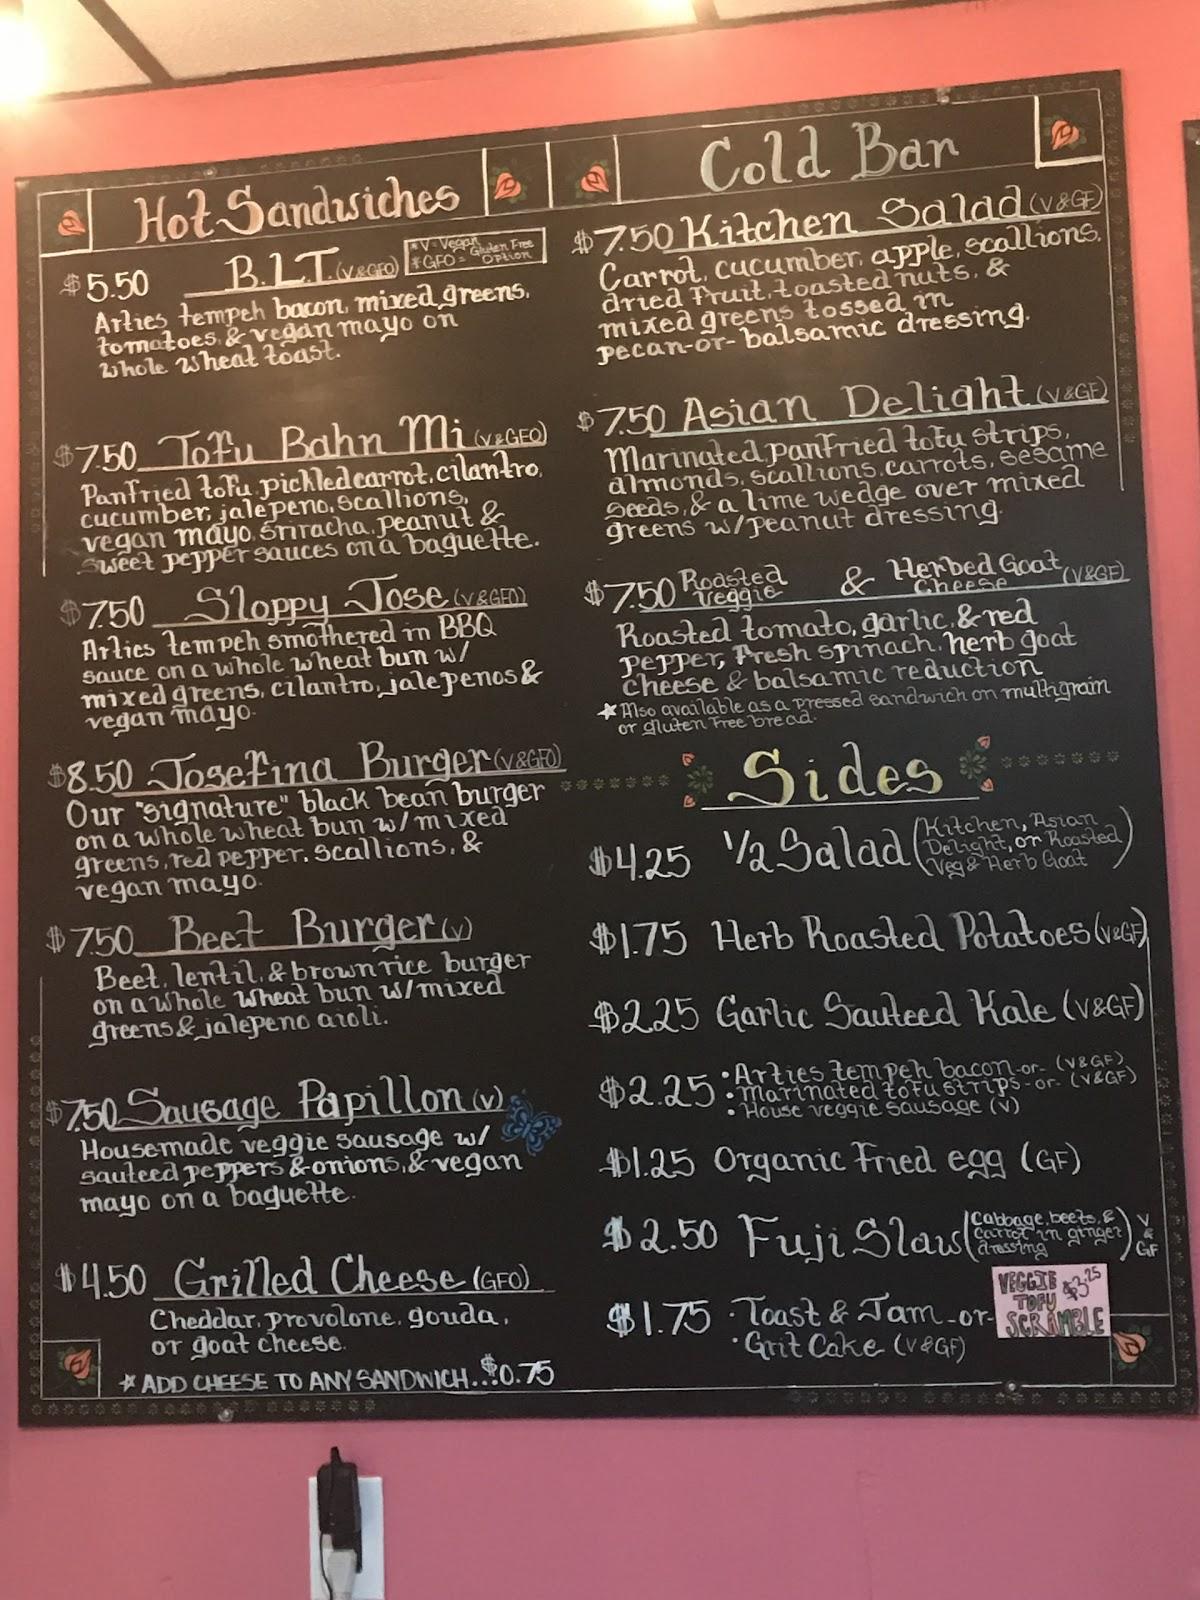 Hot Sandwiches
$5.50 B.L.T. (V&GFO)
*V=Vegan
*GFO= Gluten Free Option
Arties tempeh bacon, mixed greens,
tomatoes, & vegan mayo on
whole wheat toast.
$7.50 Tofu Bahn Mi (V&GFO)
Panfried tofu, pickled carrot, cilantro,
cucumber, jalepeno, scallions,
vegan mayo, sriracha, peanut &
sweet pepper sauces on a baguette.
$7.50 Sloppy Jose (V&GFO)
Arties tempeh smothered in BBQ
sauce on a whole wheat bun w/
mixed greens, cilantro, jalepenos &
vegan mayo.
$8.50 Josefina Burger (V&GFO)
Our "signature" black bean burger
on a whole wheat bun w/ mixed
greens, red pepper, scallions, &
vegan mayo.
$7.50 Beet Burger (V)
Beet, lentil, & brown rice burger
on a whole wheat bun w/mixed
greens & jalepeno aioli.
$7.50 Sausage Papillon (V)
Housemade veggie sausage w/
sauteed peppers & onions, & vegan
mayo on a baguette.
$4.50 Grilled Cheese (GFO)
Cheddar, provolone, gouda,
or goat cheese.
* ADD CHEESE TO ANY SANDWICH...$0.75
Cold Bar
$7.50 Kitchen Salad (V&GF)
Carrot, cucumber, apple, scallions,
dried fruit, toasted nuts, &
mixed greens tossed in
pecan-or-balsamic dressing.
$7.50 Asian Delight (V&GF)
Marinated, panfried tofu strips,
almonds, scallions, carrots, sesame
seeds, & a lime wedge over mixed
greens w/peanut dressing.
$7.50 Roasted Veggie & Herbed Goat Cheese (V&GF)
Roasted tomato, garlic, & red
pepper, fresh spinach, herb goat
cheese & balsamic reduction
*Also available as a pressed sandwich on multigrain
or gluten free bread.
Sides
$4.25 ½ Salad (Kitchen, Asian
Delight, or Roasted
Veg & Herb Goat)
$1.75 Herb Roasted Potatoes (V&GF)
$2.25 Garlic Sauteed Kale (V&GF)
$2.25 • Arties tempeh bacon -or- (V&GF)
• Marinated tofu strips -or- (V&GF)
• House veggie sausage (V)
$1.25 Organic Fried egg (GF)
$2.50 Fuji Slaw (Cabbage, beets, &
carrot in ginger
dressing) V & GF
$1.75 • Toast & Jam -or-
• Grit Cake (V&GF)
VEGGIE $3.25
TOFU
SCRAMBLE